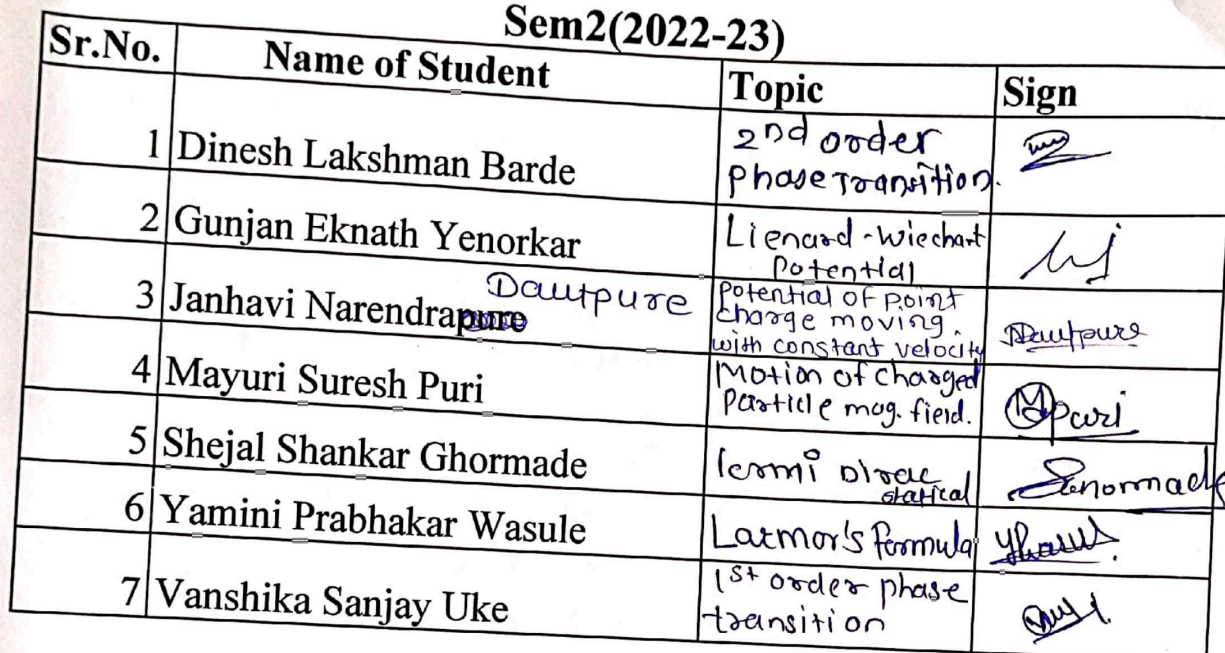 Sem2(2022-23)
Sr.No. Name of Student Topic Sign
1 Dinesh Lakshman Barde 2nd order
phase Transition.
2 Gunjan Eknath Yenorkar Lienard-Wiechart
Potential
3 Janhavi Narendrapure Dautpure potential of point
charge moving.
with constant velocity Dautpure
4 Mayuri Suresh Puri Motion of charged
particle mag. field. MPuri
5 Shejal Shankar Ghormade fermi Dirac
statical
6 Yamini Prabhakar Wasule Larmor's formula
7 Vanshika Sanjay Uke 1st order phase
transition